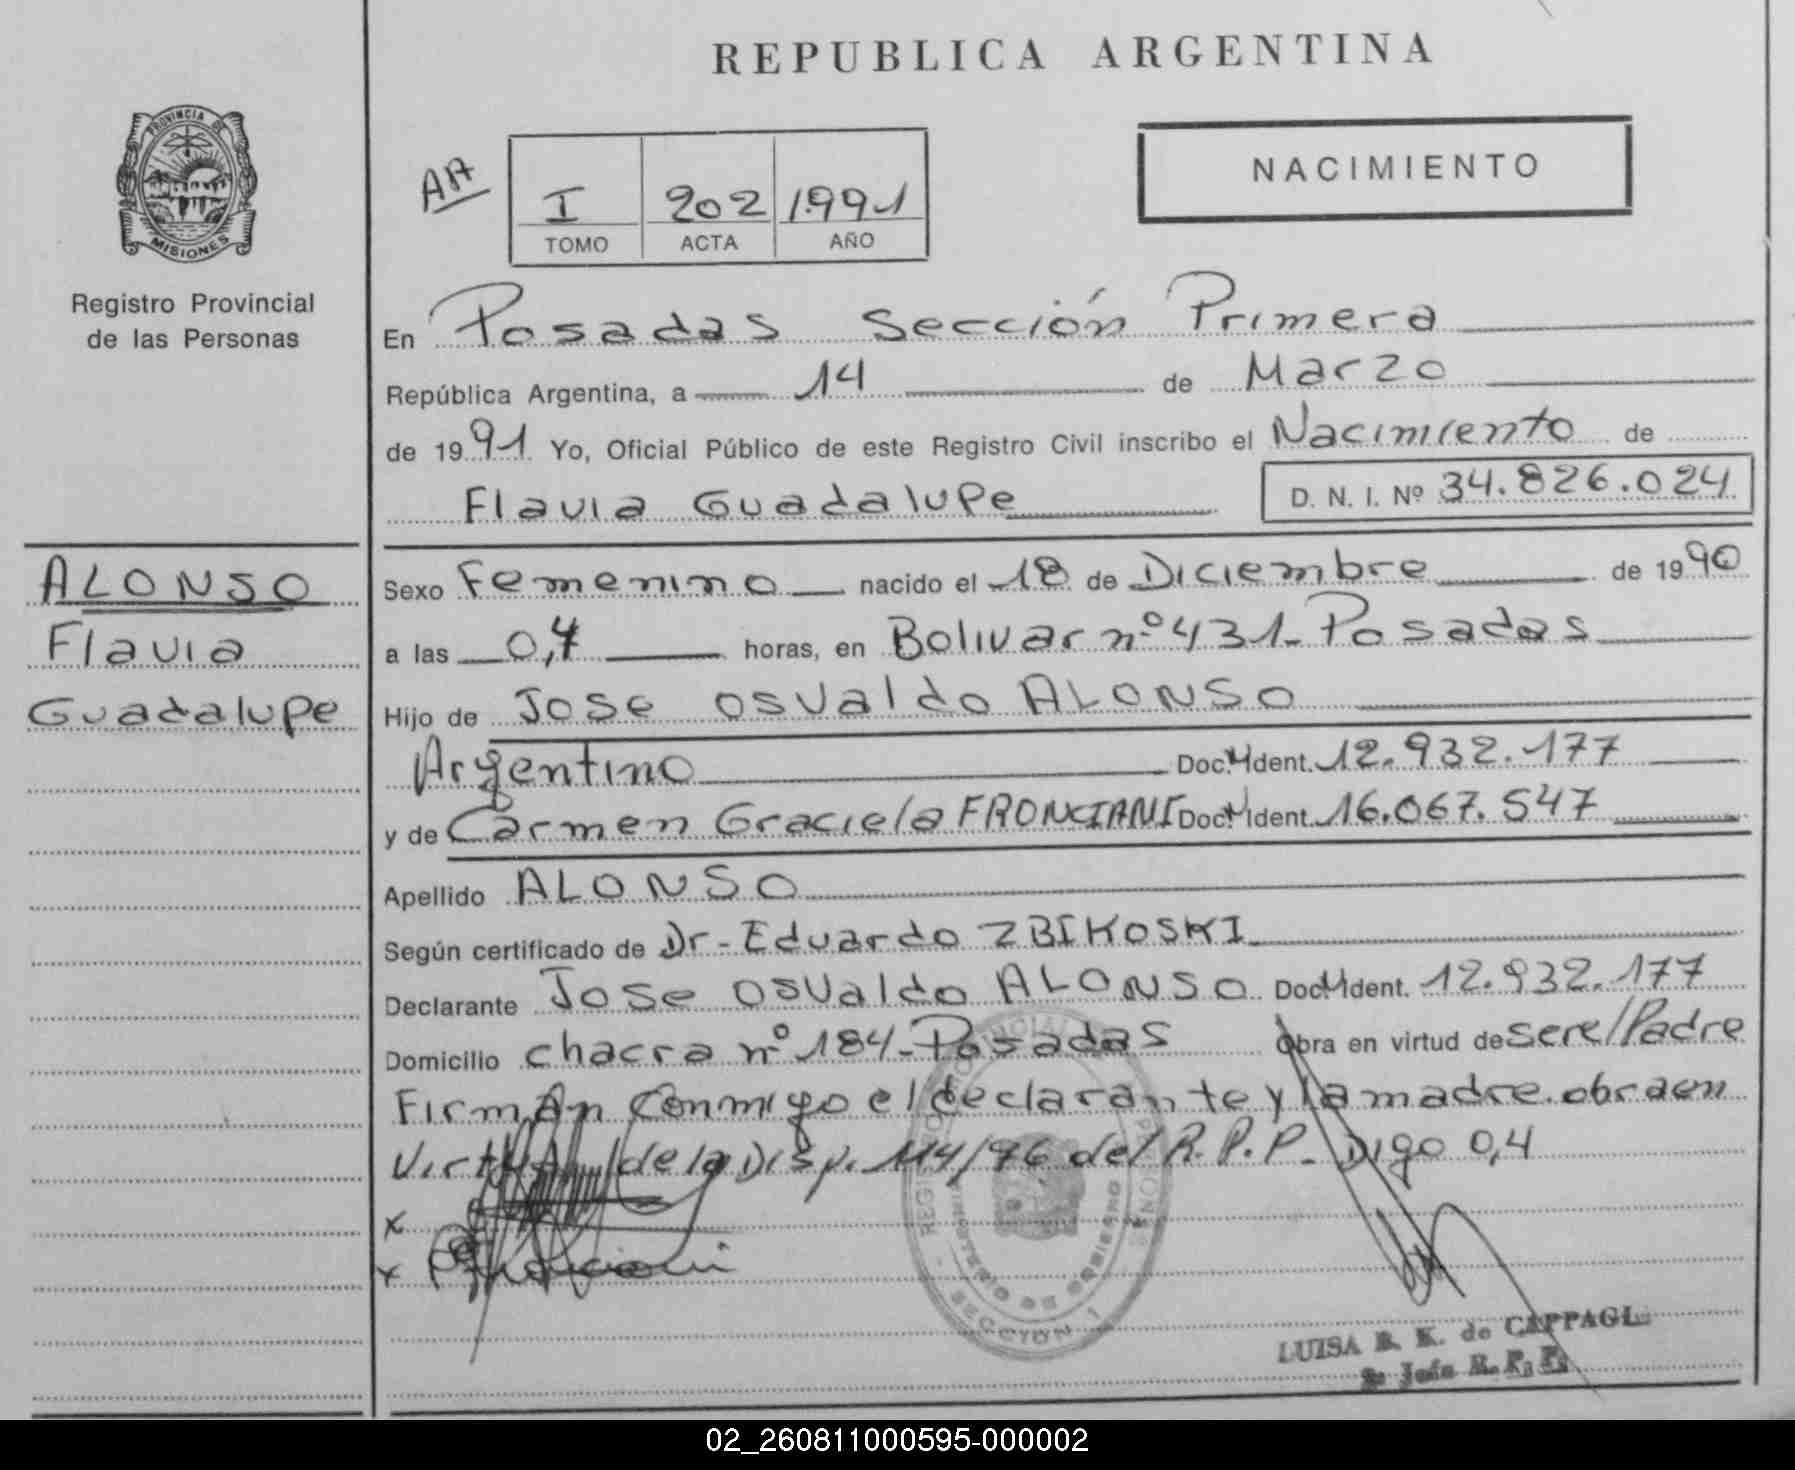 REPUBLICA ARGENTINA
PROVINCIA DE
MISIONES
Registro Provincial
de las Personas
AA
I 202 1991
TOMO ACTA AÑO
NACIMIENTO
En Posadas Sección Primera
República Argentina, a 14 de Marzo
de 1991 Yo, Oficial Público de este Registro Civil inscribo el Nacimiento de
Flavia Guadalupe D. N. I. Nº 34.826.024
ALONSO
Flavia
Guadalupe
Sexo Femenino nacido el 18 de Diciembre de 1990
a las 0,4 horas, en Bolivar nº 431-Posadas
Hijo de Jose Osvaldo ALONSO
Argentino Doc. Ident. 12.932.177
y de Carmen Graciela FRONCIANI Doc. Ident. 16.067.547
Apellido ALONSO
Según certificado de Dr- Eduardo ZBIKOSKI
Declarante Jose Osvaldo ALONSO Doc. Ident. 12.932.177
Domicilio chacra nº 184-Posadas Obra en virtud de ser el Padre
Firman Conmigo el declarante y la madre obra en
Virtud de la Disp. 114/76 del R.P.P. Digo 0,4
x
x
REGISTRO PROVINCIAL DE LAS PERSONAS
MINISTERIO DE GOBIERNO
SECCION 1
LUISA B. K. de CAPPAGLI
02_260811000595-000002